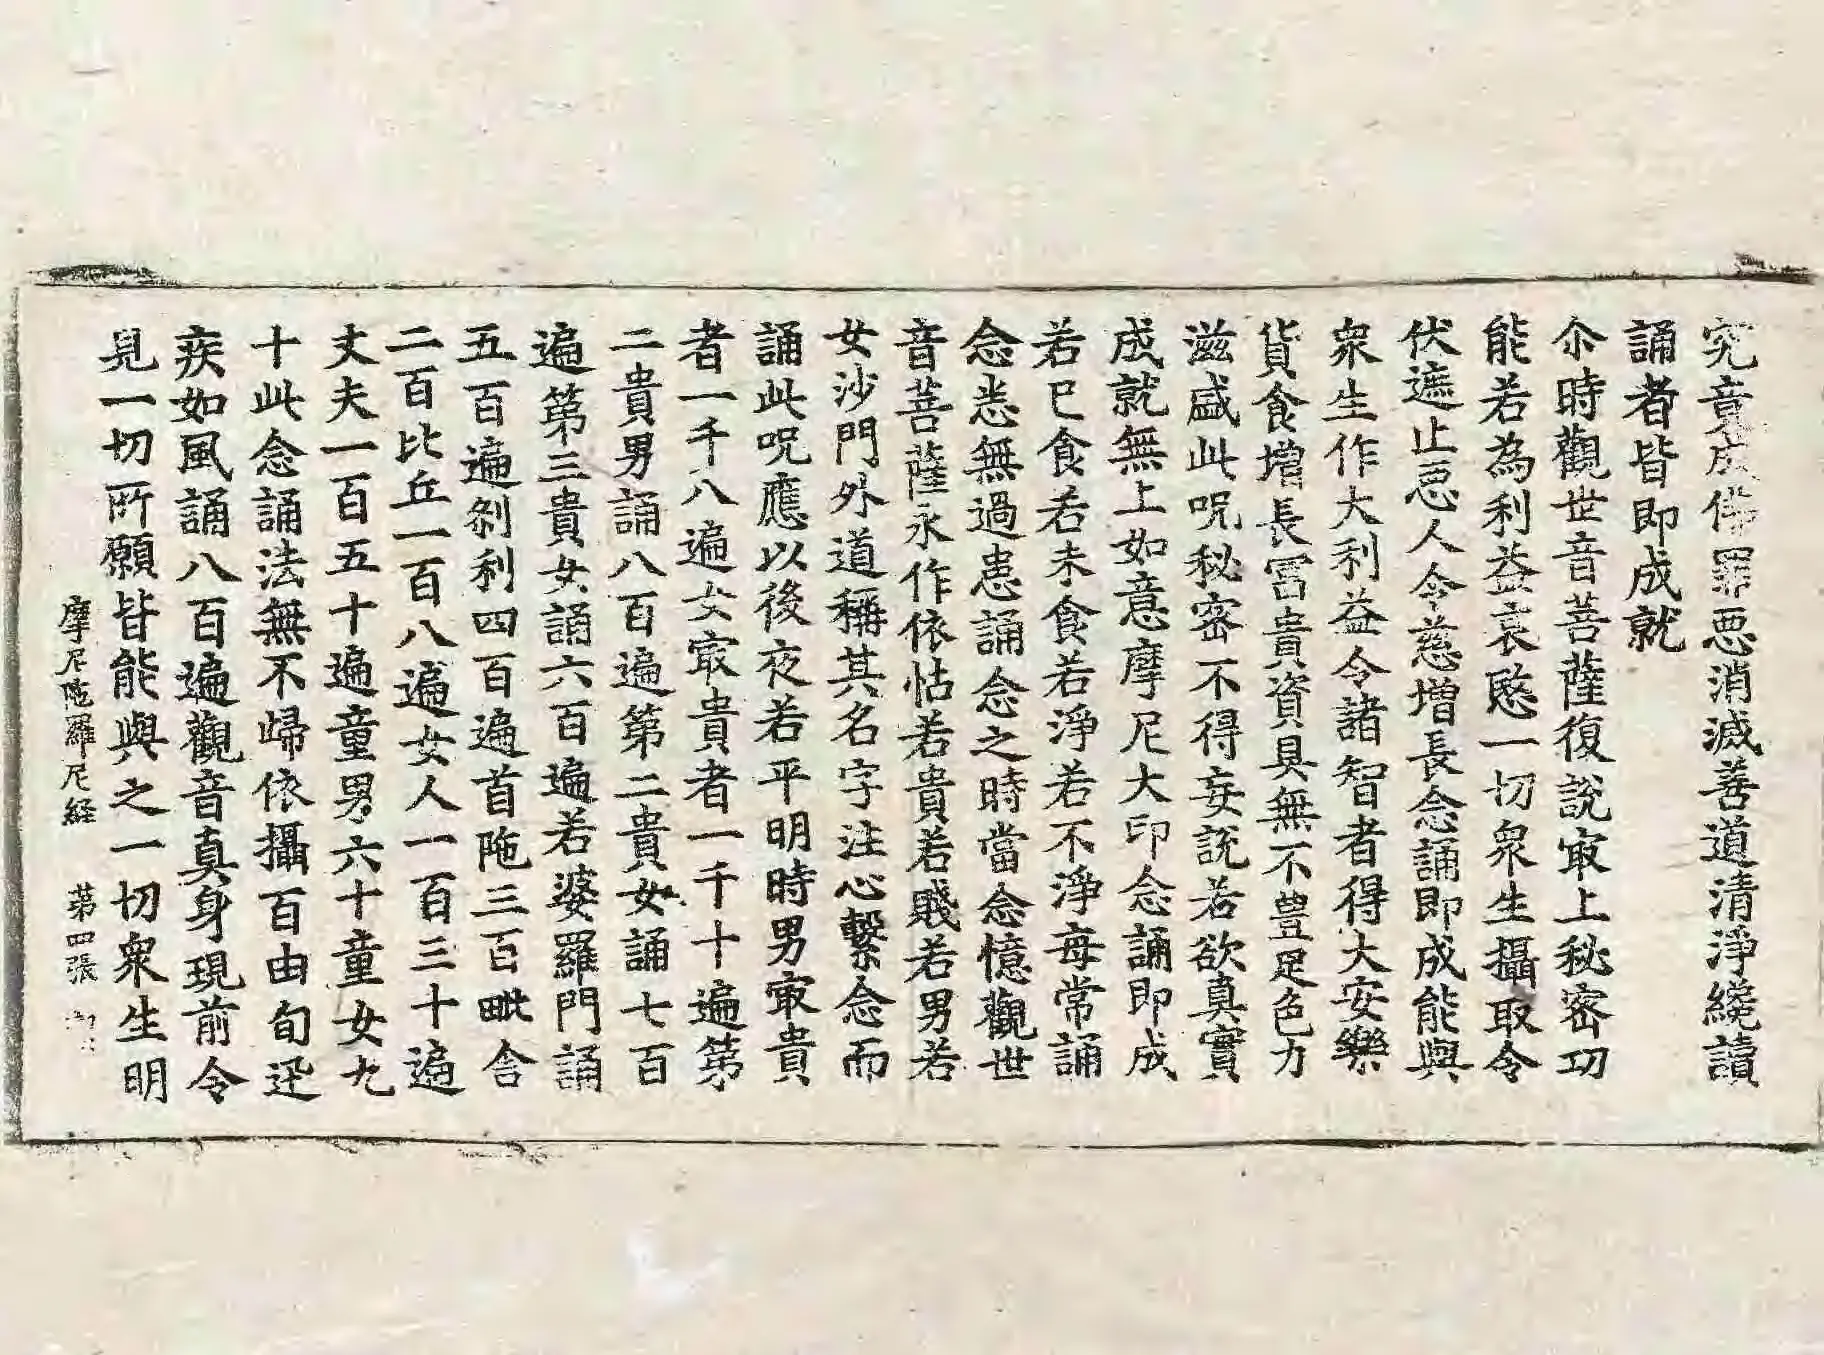 究竟成佛罪惡消滅善道清淨纔讀
誦者皆即成就
尒時觀世音菩薩復説㝡上秘密功
能若為利益哀愍一切衆生攝取令
伏遮止惡人令慈增長念誦即成能與
衆生作大利益令諸智者得大安樂
貨食增長冨貴資具無不豊足色力
滋盛此呪秘密不得妄說若欲真實
成就無上如意摩尼大印念誦即成
若已食若未食若淨若不淨每常誦
念悉無過患誦念之時當念憶觀世
音菩薩永作依怙若貴若賤若男若
女沙門外道稱其名字注心繫念而
誦此呪應以後夜若平明時男㝡貴
者一千八遍女㝡貴者一千十遍第
二貴男誦八百遍第二貴女誦七百
遍第三貴女誦六百遍若婆羅門誦
五百遍刹利四百遍首陁三百毗舎
二百比丘一百八遍女人一百三十遍
丈夫一百五十遍童男六十童女九
十此念誦法無不歸依攝百由旬迊
疾如風誦八百遍觀音真身現前令
見一切所願皆能與之一切衆生明
摩尼陁羅尼経 苐四張